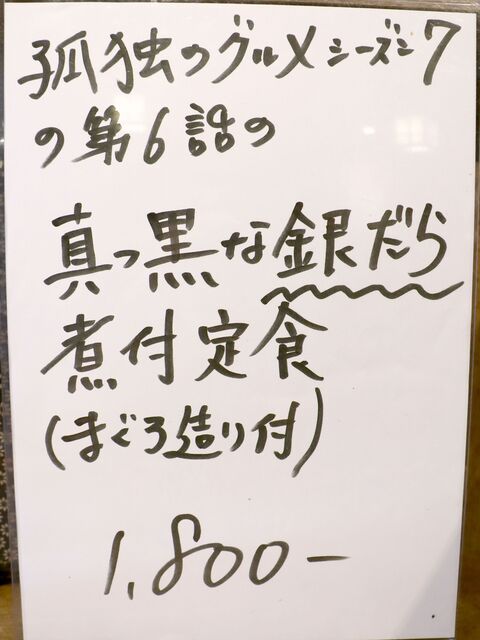 孤独のグルメシーズン7
の第6話の
真っ黒な銀だら
煮付定食
(まぐろ造り付)
1,800-